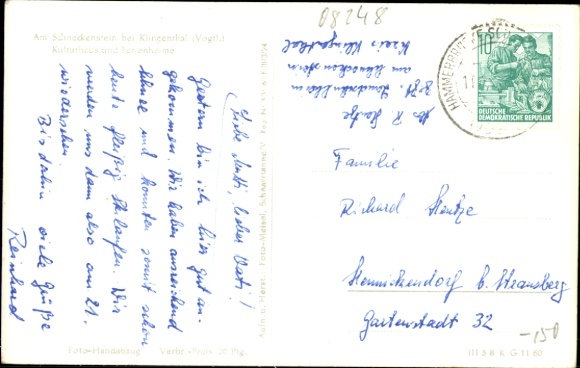 08248
Am Schneckenstein bei Klingenthal (Vogtl.)
Kulturhaus und Ferienheime
Liebe Mutti, lieber Vati!
Gestern bin ich hier gut an-
gekommen. Wir haben ausreichend
Schnee und konnten somit schon
heute fleißig Skilaufen. Wir
werden uns dann also am 21.
wiedersehen.
Bis dahin viele Grüße
Reinhard
Foto-Handabzug Verbr.-Preis 20 Pfg.
Aufn. u. Herst. Foto-Meisel, Schnarrtanne/V.
R.
z. Zt.
am Schneckenstein
Kreis Klingenthal
10
DEUTSCHE
DEMOKRATISCHE REPUBLIK
HAMMERBRÜCKE
Familie
Richard Stentze
Hennickendorf b. Strausberg
Gartenstadt 32
-150
III 5 8 K G 11 60